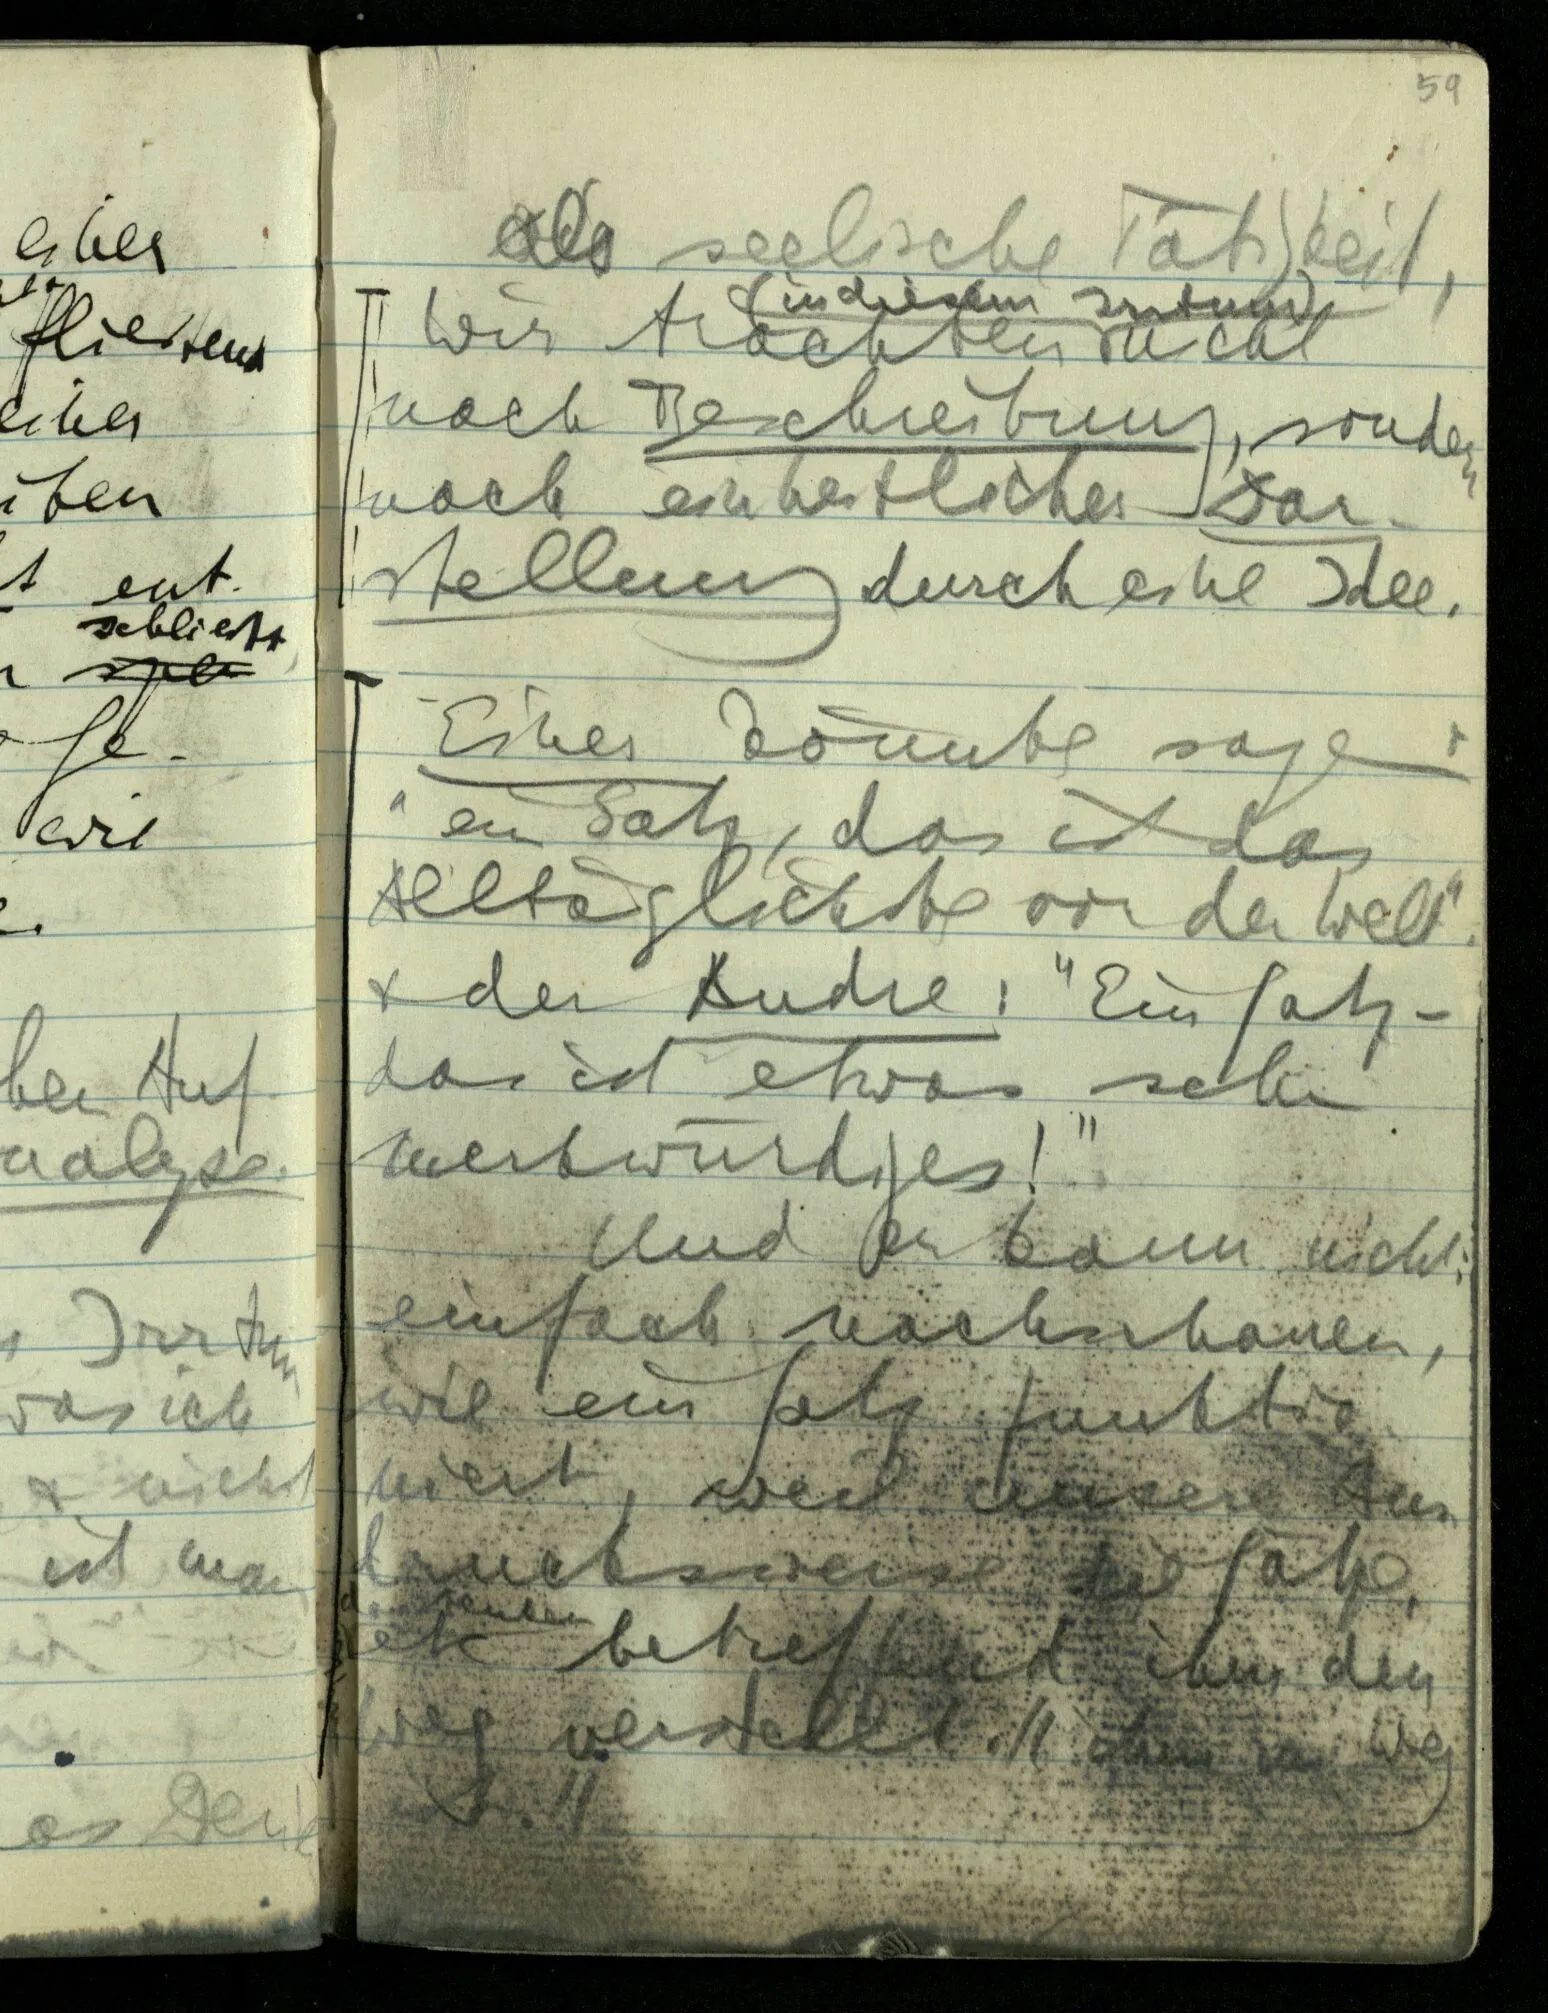 einer
fliessend
einer
iben
t ent-
schliesst,
n
Ge-
wie
ber Auf
nalyse.
s Irrtum
was ich
& nicht
ist man
as Denk
59
als seelische Tätigkeit,
(in diesem Irrtum)
Wir trachten nicht
nach Beschreibung, sondern
nach einheitlicher Dar-
stellung durch eine Idee.
Einer könnte sagen
"ein Satz, das ist das
Alltäglichste von der Welt"
& der Andre: "Ein Satz –
das ist etwas sehr
merkwürdiges!"
Und er kann nicht:
einfach nachschauen,
wie ein Satz funktio-
niert, weil unsere Aus
drucksweise die Sätze,
das Denken
etc betreffend ihm den
Weg verstellt. // ihm im Weg
ist. //